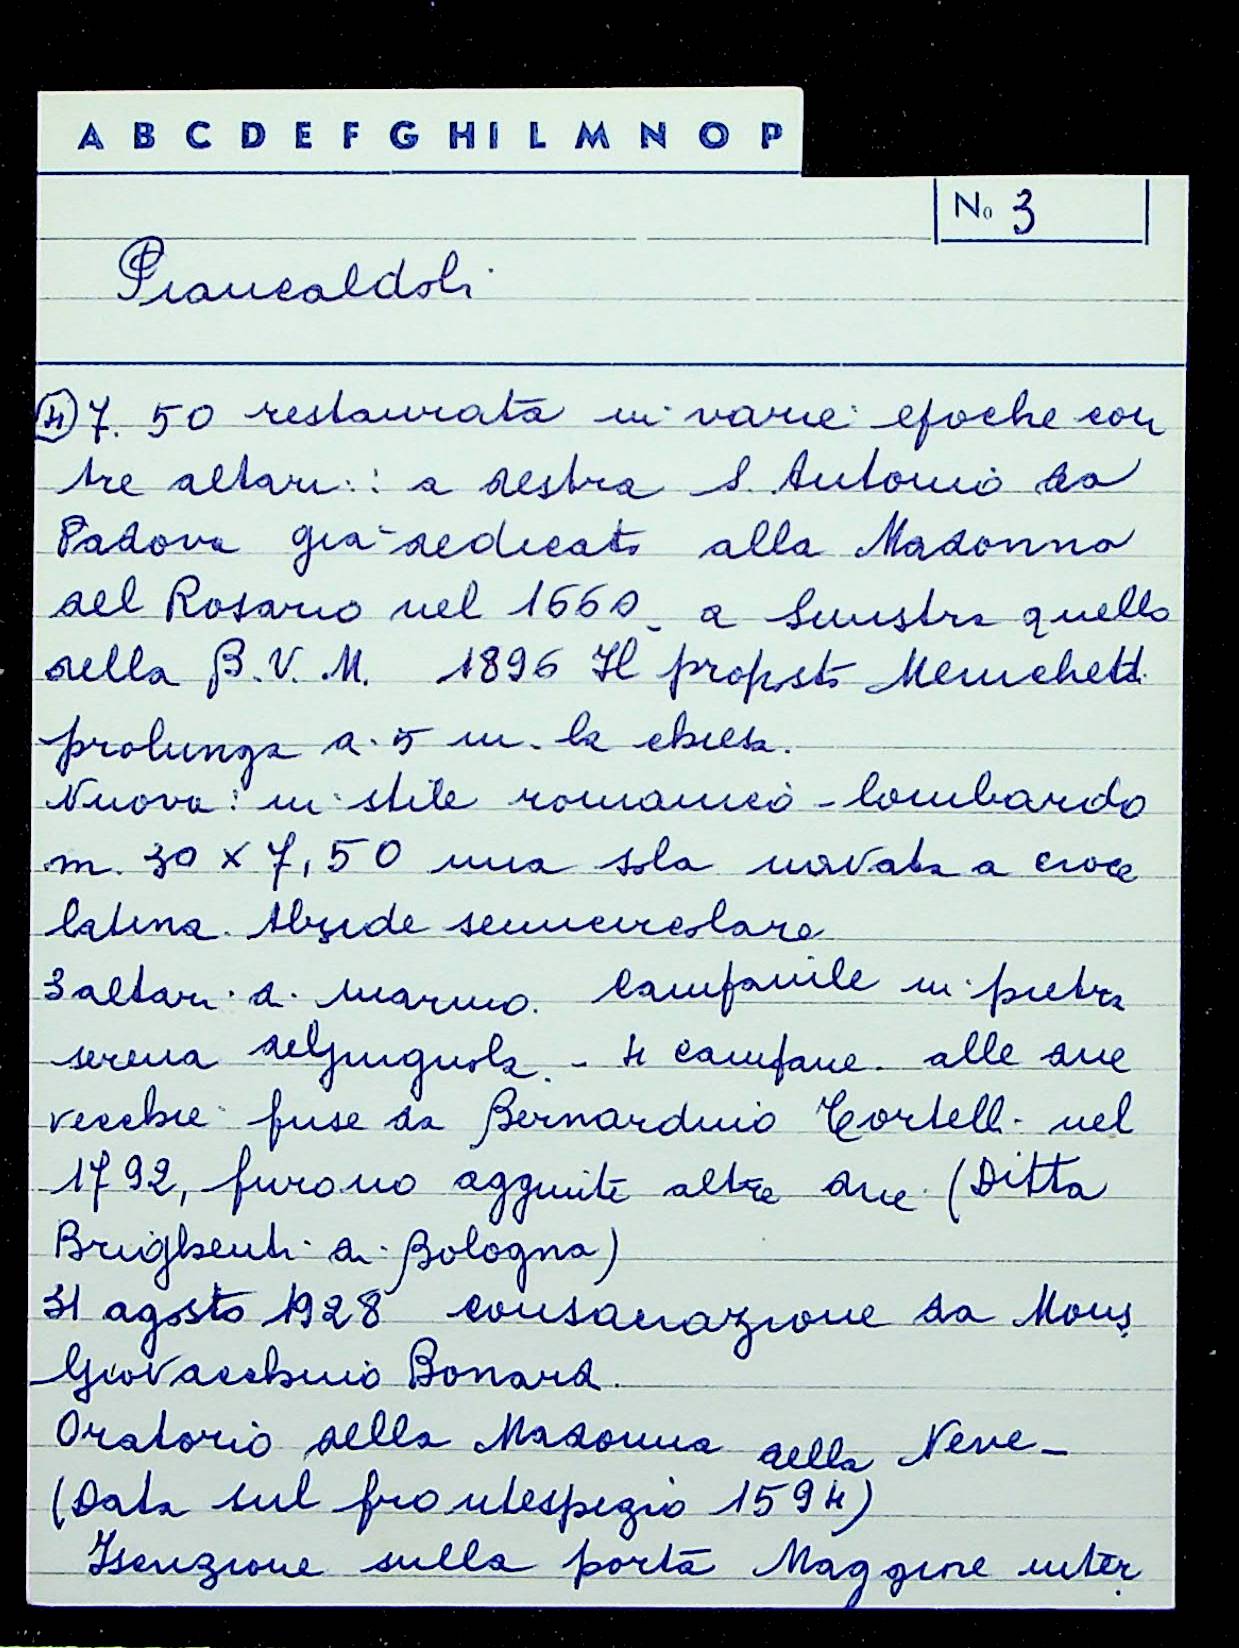 A B C D E F G H I L M N O P
No 3
Piancaldoli
④ 7.50 restaurata in varie epoche con
tre altari: a destra S. Antonio da
Padova già dedicato alla Madonna
del Rosario nel 1660 - a sinistra quello
della B.V.M. 1896 Il proposto Menichetti
prolunga di 5 m. la chiesa.
Nuova: in stile romanico-lombardo
m. 30 x 7,50 una sola navata a croce
latina. Abside semicircolare
3 altari di marmo. Campanile in pietra
serena del Giugnola. - 4 campane alle due
vecchie fuse da Bernardino Cortelli nel
1792, furono aggiunte altre due (Ditta
Brighenti di Bologna)
31 agosto 1928 consacrazione da Mons.
Giovacchino Bonardi.
Oratorio della Madonna della Neve -
(Data sul frontespizio 1594)
Iscrizione sulla porta Maggiore inter.